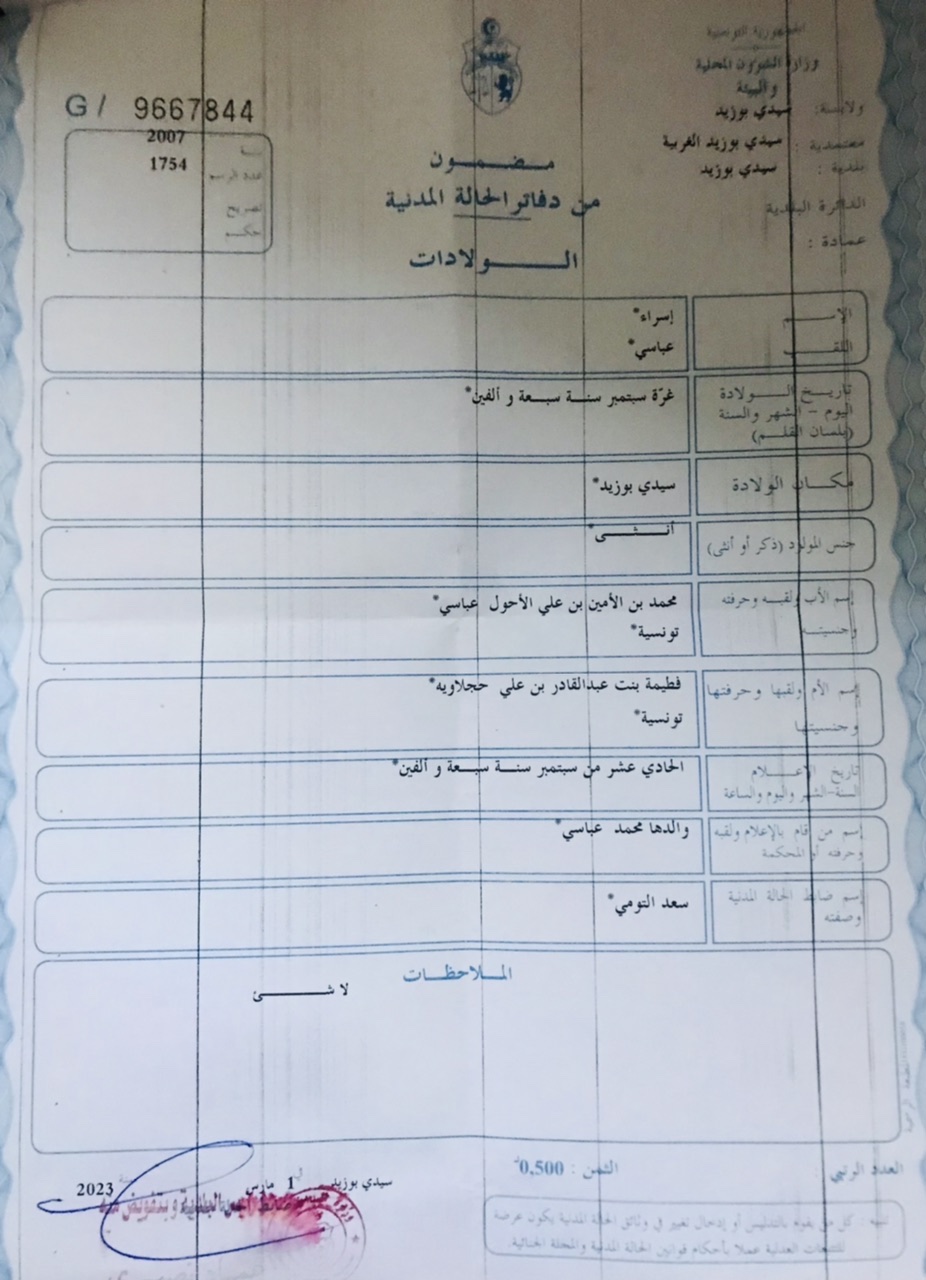 الجمهورية التونسية
وزارة الشؤون المحلية
والبيئة
ولايــة: سيدي بوزيد
معتمدية : سيدي بوزيد الغربية
بلدية : سيدي بوزيد
الدائرة البلدية
عمادة :
G / 9667844
سنة 2007
عدد الرسم 1754
تصريح
حكم
مضمون
من دفاتر الحالة المدنية
الولادات
الاسم إسراء*
اللقب عباسي*
تاريخ الولادة غرّة سبتمبر سنة سبعة و ألفين*
اليوم - الشهر والسنة
(بلسان القلم)
مكان الولادة سيدي بوزيد*
جنس المولود (ذكر أو أنثى) أنثى*
إسم الأب ولقبه وحرفته محمد بن الأمين بن علي الأحول عباسي*
وجنسيته تونسية*
إسم الأم ولقبها وحرفتها فطيمة بنت عبدالقادر بن علي حجلاويه*
وجنسيتها تونسية*
تاريخ الإعلام الحادي عشر من سبتمبر سنة سبعة و ألفين*
السنة-الشهر واليوم والساعة
إسم من قام بالإعلام ولقبه والدها محمد عباسي*
وحرفته أو المحكمة
إسم ضابط الحالة المدنية سعد التومي*
وصفته
الملاحظات
لا شئ
العدد الرتبي :
الثمن : 0,500د
سيدي بوزيد في 1 مارس سنة 2023
تنبيه : كل من يقوم بالتدليس أو إدخال تغيير في وثائق الحالة المدنية يكون عرضة
للتتبعات العدلية عملا بأحكام قوانين الحالة المدنية والمجلة الجنائية.